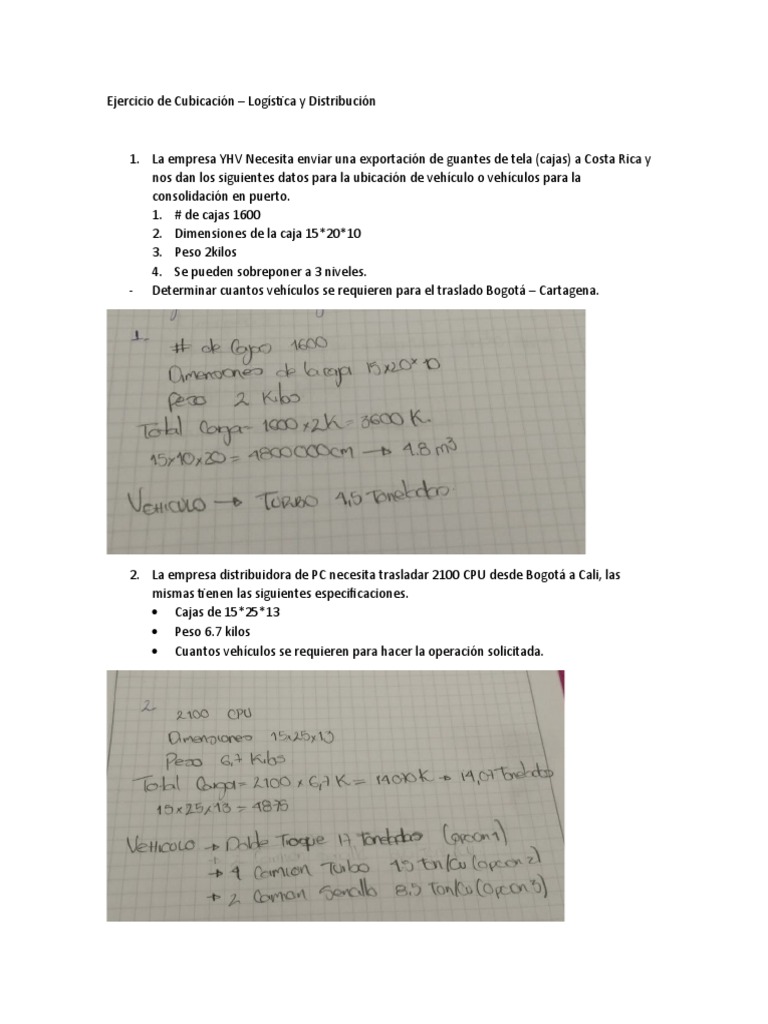 Ejercicio de Cubicación – Logística y Distribución
1. La empresa YHV Necesita enviar una exportación de guantes de tela (cajas) a Costa Rica y
nos dan los siguientes datos para la ubicación de vehículo o vehículos para la
consolidación en puerto.
1. # de cajas 1600
2. Dimensiones de la caja 15*20*10
3. Peso 2kilos
4. Se pueden sobreponer a 3 niveles.
- Determinar cuantos vehículos se requieren para el traslado Bogotá – Cartagena.
1.
# de Cajas 1600
Dimensiones de la caja 15x20x10
Peso 2 Kilos
Total Carga= 1600 x 2K = 3600 K.
15x10x20 = 4800000cm → 4.8 m³
VEHICULO → TURBO 4,5 Toneladas.
2. La empresa distribuidora de PC necesita trasladar 2100 CPU desde Bogotá a Cali, las
mismas tienen las siguientes especificaciones.
• Cajas de 15*25*13
• Peso 6.7 kilos
• Cuantos vehículos se requieren para hacer la operación solicitada.
2
2100 CPU
Dimensiones 15x25x13
Peso 6,7 Kilos
Total Carga= 2100 x 6,7 K = 14070K → 14,07 Toneladas
15x25x13 = 4875
VEHICULO → Doble Troque 17 Toneladas (opcion 1)
→ 4 Camion Turbo 4,5 Ton/cu (opcion 2)
→ 2 Camion Sencillo 8,5 Ton/cu (opcion 3)